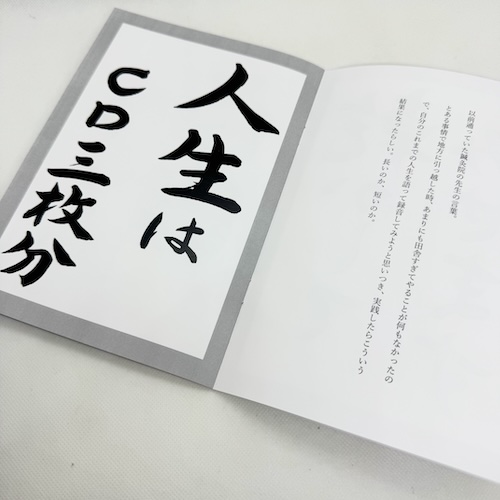 人生は
CD三枚分
以前通っていた鍼灸院の先生の言葉。
とある事情で地方に引っ越した時、あまりにも田舎すぎてやることが何もなかったの
で、自分のこれまでの人生を語って録音してみようと思いつき、実践したらこういう
結果になったらしい。長いのか、短いのか。